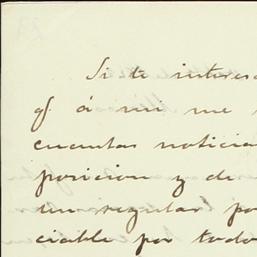 Si te interesa
q. á mi me
cuantas noticia
posicion y de
un regular po
ciable por todo